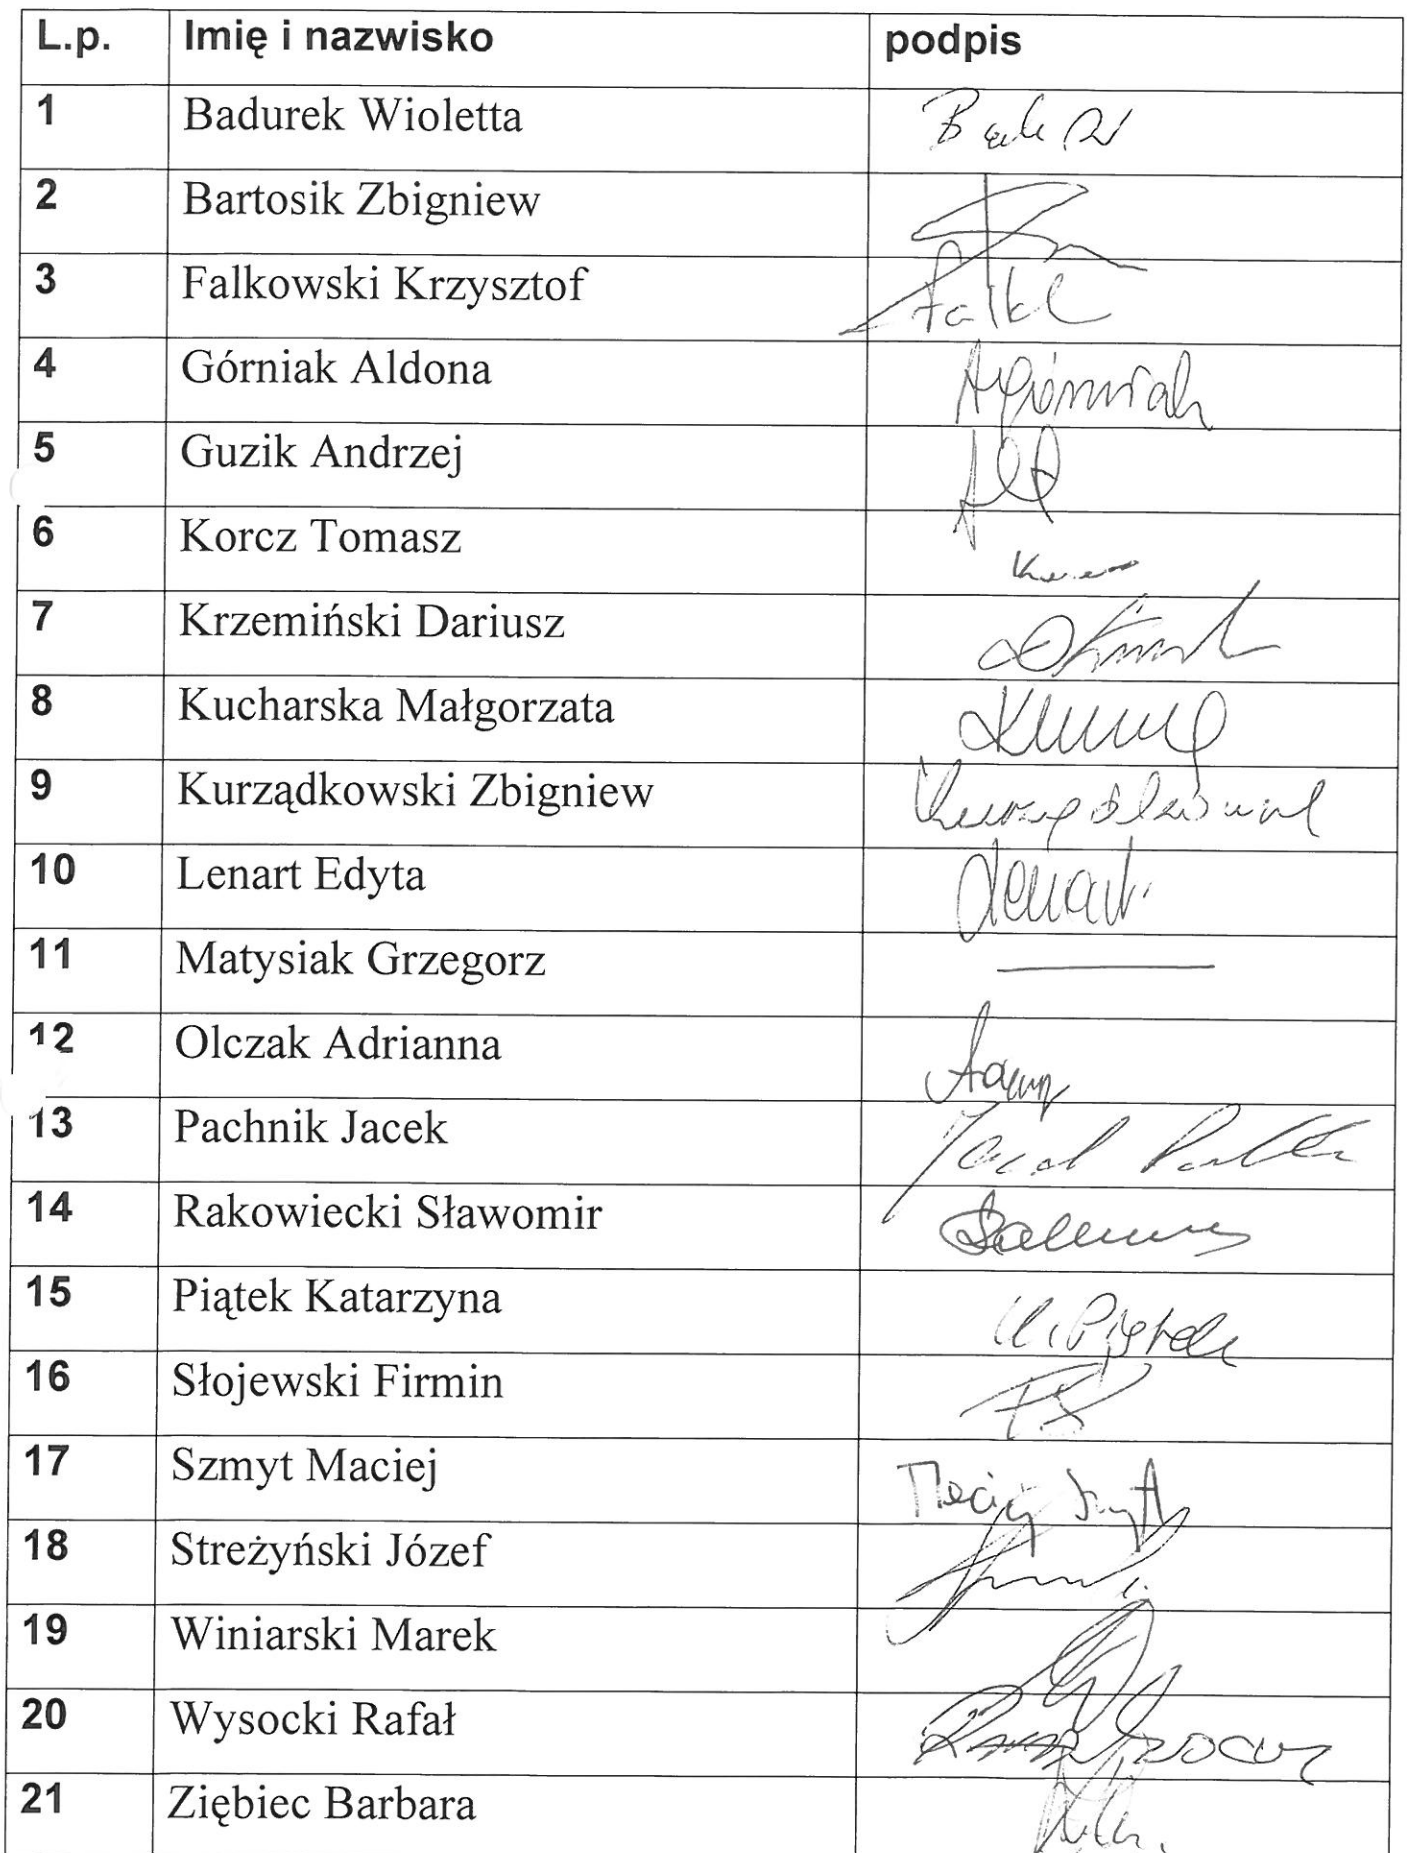 L.p. Imię i nazwisko podpis
1 Badurek Wioletta
2 Bartosik Zbigniew
3 Falkowski Krzysztof
4 Górniak Aldona A Górniak
5 Guzik Andrzej
6 Korcz Tomasz
7 Krzemiński Dariusz
8 Kucharska Małgorzata
9 Kurządkowski Zbigniew
10 Lenart Edyta Lenart
11 Matysiak Grzegorz
12 Olczak Adrianna
13 Pachnik Jacek Jacek
14 Rakowiecki Sławomir
15 Piątek Katarzyna K. Piątek
16 Słojewski Firmin FS
17 Szmyt Maciej Maciej Szmyt
18 Streżyński Józef
19 Winiarski Marek
20 Wysocki Rafał
21 Ziębiec Barbara